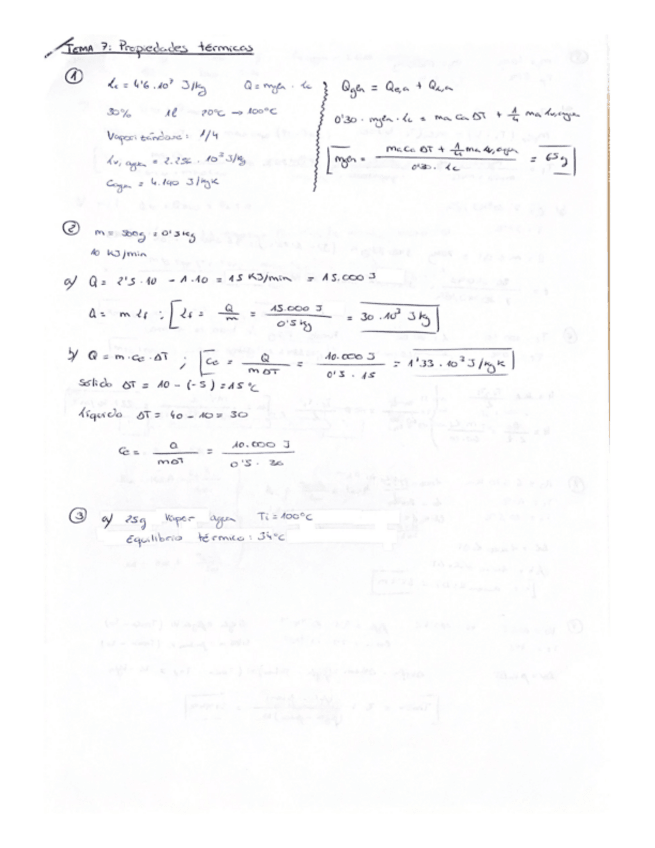 TEMA 7: Propiedades térmicas
①
Lc = 4'6·10⁷ J/kg Q = mgln · Lc
30% 1l 20°C → 100°C
Vaporizándose: 1/4
Lv, agua = 2.256 · 10³ J/kg
Cagua = 4.190 J/kgK
Qgln = Qe,a + QLv,a
0'30 · mgln · Lc = ma Ca ΔT + 1/4 ma Lv,agua
mgln = ma Ca ΔT + 1/4 ma Lv,agua / 0'30 · Lc = 65g
② m = 500g = 0'5 kg
10 KJ/min
a) Q = 2'5·10 - 1·10 = 15 KJ/min = 15.000 J
Q = m Lf ; Lf = Q/m = 15.000 J / 0'5 kg = 30·10³ J/kg
b) Q = m·ce·ΔT ; Ce = Q / mΔT = 10.000 J / 0'5 · 15 = 1'33·10³ J/kgK
Sólido ΔT = 10 - (-5) = 15°C
Líquido ΔT = 40 - 10 = 30
Ce = Q / mΔT = 10.000 J / 0'5 · 30
③ a) 25g vapor agua Ti = 100°C
Equilibrio térmico: 34°C